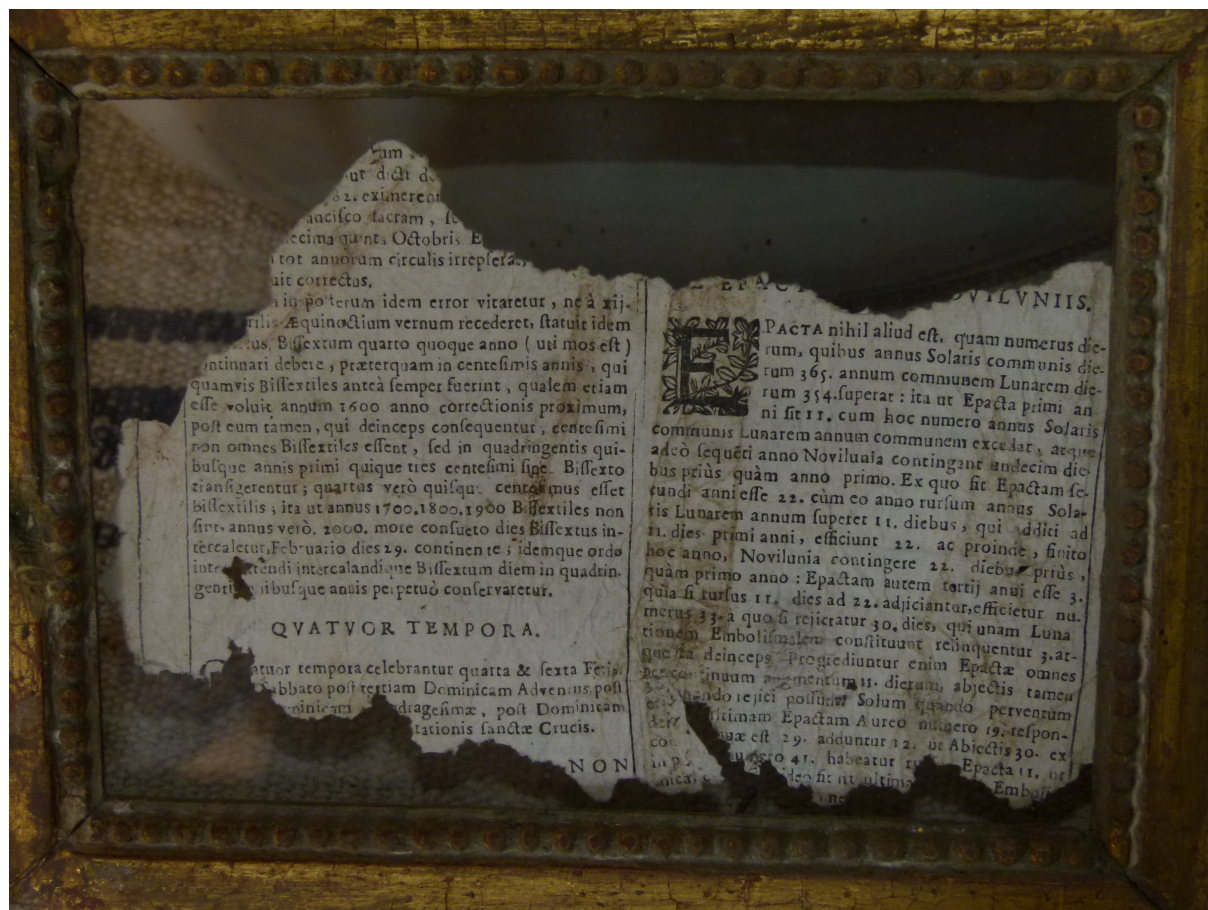 ut dicti
82. eximeren
ancisco sacram, se
ecima quinta Octobris E
tot annorum circulis irrepserat
uit correctus.
in posterum idem error vitaretur, ne à xij.
rilis Æquinoctium vernum recederet, statuit idem
Bissextum quarto quoque anno (uti mos est)
ontinuari debere, præterquam in centesimis annis, qui
quamvis Bissextiles anteà semper fuerint, qualem etiam
esse voluit annum 1600 anno correctionis proximum,
post eum tamen, qui deinceps consequentur, centesimi
non omnes Bissextiles essent, sed in quadringentis qui-
busque annis primi quique tres centesimi sine Bissexto
transigerentur; quartus verò quisque centesimus esset
bissextilis; ita ut annus 1700.1800.1900 Bissextiles non
sint. annus verò. 2000. more consueto dies Bissextus in-
tercaletur, Februario dies 29. continente; idemque ordo
intercalandique Bissextum diem in quadrin-
gentis quibusque annis perpetuò conservaretur.
QVATVOR TEMPORA.
atuor tempora celebrantur quarta & sexta Feria
abbato post tertiam Dominicam Adventus, post
minicam dragesimæ, post Dominicam
tationis sanctæ Crucis.
NON
EPACT OVILVNIIS.
EPACTA nihil aliud est, quam numerus die-
rum, quibus annus Solaris communis die-
rum 365. annum communem Lunarem die-
rum 354. superat: ita ut Epacta primi an
ni sit 11. cum hoc numero annus Solaris
communis Lunarem annum communem excedat, atque
adeò sequēti anno Novilunia contingant undecim die-
bus priùs quàm anno primo. Ex quo fit Epactam se-
cundi anni esse 22. cùm eo anno rursum annus Sola-
ris Lunarem annum superet 11. diebus, qui additi ad
11. dies primi anni, efficiunt 22. ac proinde, finito
hoc anno, Novilunia contingere 22. diebus priùs,
quàm primo anno: Epactam autem tertij anni esse 3.
quia si rursus 11. dies ad 22. adjiciantur, efficietur nu-
merus 33. à quo si rejiciatur 30. dies, qui unam Luna
tionem Embolismalem constituunt relinquentur 3. at-
que ita deinceps Progrediuntur enim Epactæ omnes
per continuum augmentum 11. dierum, abjectis tamen
rejici possunt Solum quando perventum
ultimam Epactam Aureo numero 19. respon-
quæ est 29. adduntur 12. ut Abjectis 30. ex
numero 41. habeatur Epacta 11. ut
ideo fit ut ultima Emboli